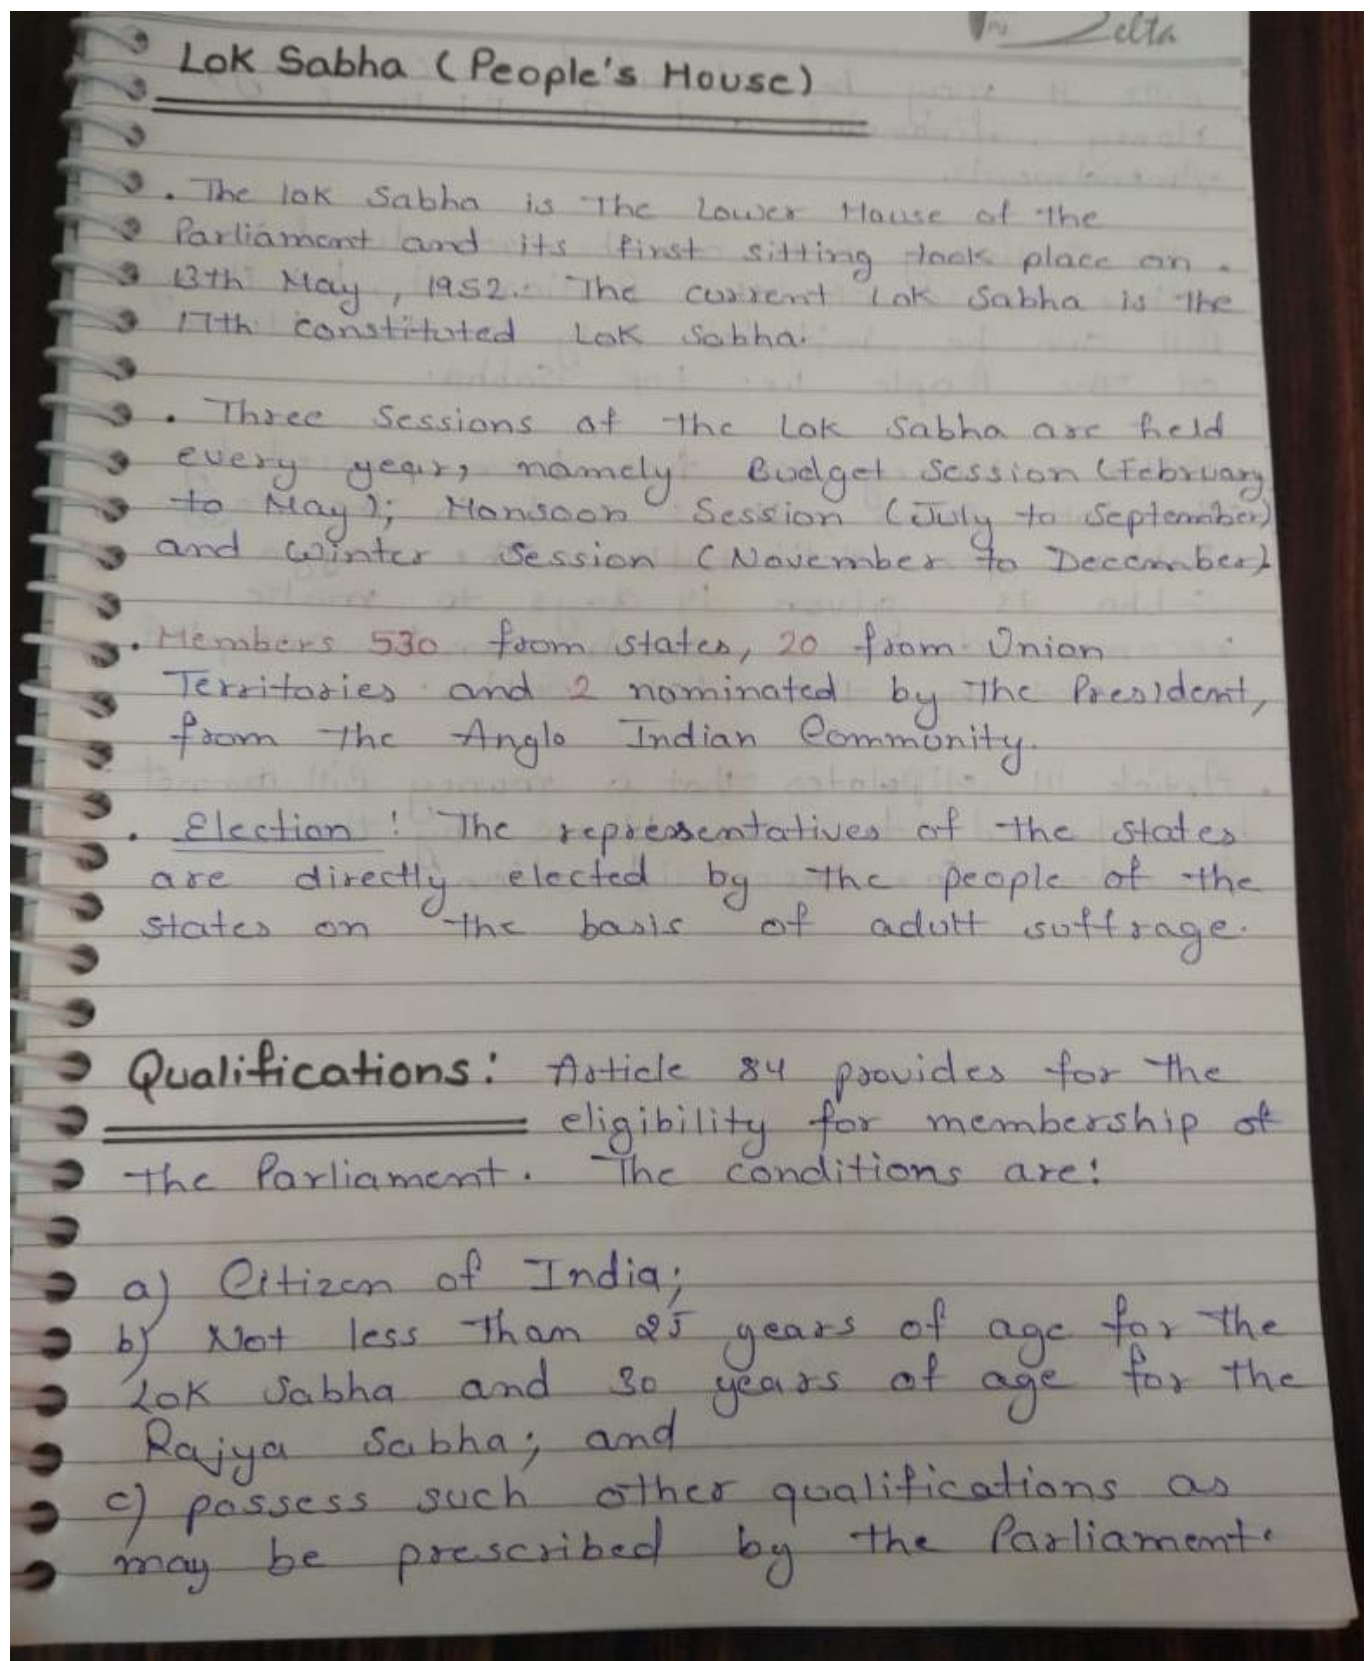 Delta
Lok Sabha (People's House)
. The lok Sabha is The Lower House of the
Parliament and its first sitting took place on.
13th May, 1952. The current Lok Sabha is the
17th constituted Lok Sabha.
. Three Sessions of the Lok Sabha are held
every year, namely Budget Session (February
to May); Monsoon Session (July to September)
and Winter Session (November to December).
. Members 530 from states, 20 from Union
Territories and 2 nominated by The President,
from the Anglo Indian Community.
. Election : The representatives of the states
are directly elected by the people of the
states on the basis of adult suffrage.
Qualifications: Article 84 provides for the
eligibility for membership of
the Parliament. The conditions are:
a) Citizen of India;
b) Not less than 25 years of age for the
Lok Sabha and 30 years of age for the
Rajya Sabha; and
c) possess such other qualifications as
may be prescribed by the Parliament.